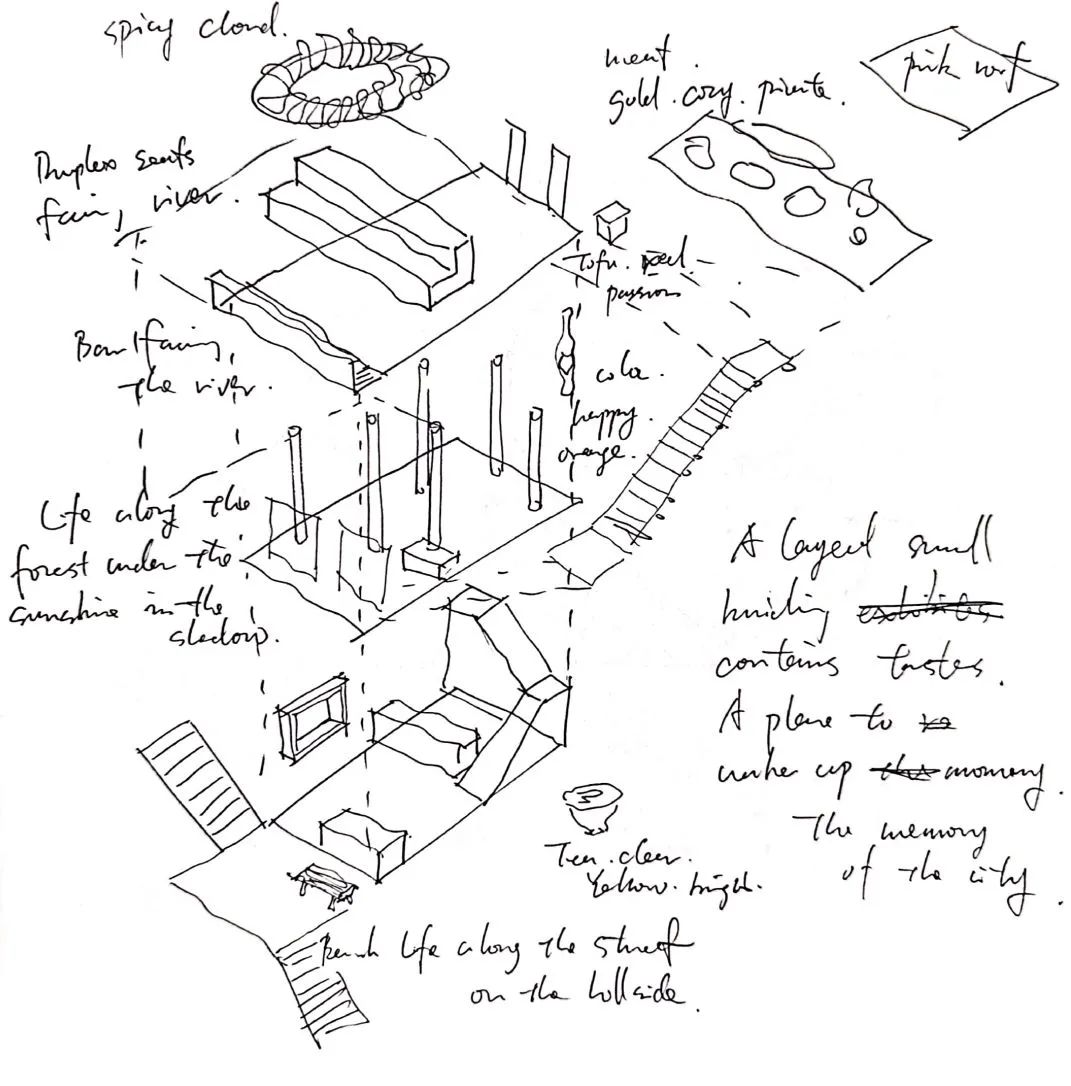 spicy cloud.
meat.
gold. cozy. private.
pink roof
Duplex seats
facing river.
Tofu. red.
passion
Bar facing
the river.
cola.
happy.
orange.
Life along the
forest under the
sunshine in the
A layed small
contains tastes.
A place to
wake up momory.
The memory
of the city.
Tea. clear.
Yellow. bright.
Bench life along the street
on the hillside.